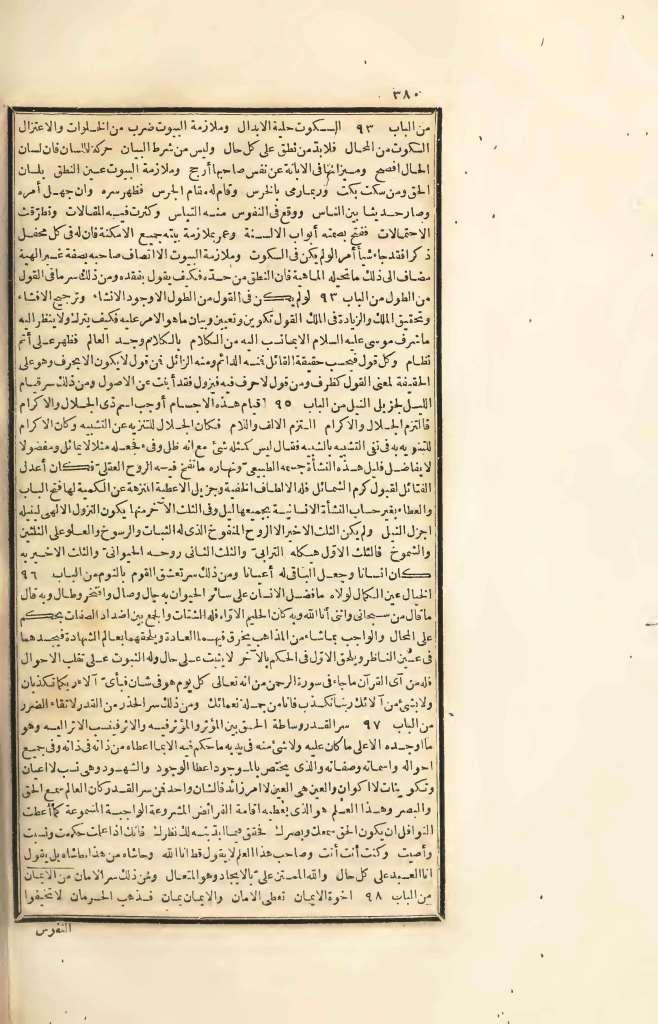 ٣٨٠
من الباب ٩٣ السكوت حلية الابدال وملازمة البيوت ضرب من الخلوات والاعتزال
السكوت من المحال فلابد من نطق على كل حال وليس من شرط البيان حركة اللسان فان لسان
الحال افصح وميزانها فى الابانة عن نفس صاحبها أرجح وملازمة البيوت عين النطق بلسان
الحق ومن سكت بكت وربما رمى بالخرس وقام له مقام الجرس فظهر سره وان جهل أمره
وصار حديثا بين الناس ووقع فى النفوس منه التباس وكثرت فيه المقالات وتطرقت
الاحتمالات ففتح بصمته أبواب الالسنة وعمر بملازمة بيته جميع الامكنة فان له فى كل محفل
ذكرا فقد جاء شيأ أمر الولم يكن فى السكوت وملازمة البيوت الا اتصاف صاحبه بصفة غير الهية
مضاف الى ذلك ما تحيله الماهية فان النطق من حده فكيف يقول بفقده ومن ذلك سر ما فى القول
من الطول من الباب ٩٣ لو لم يكن فى القول من الطول الا وجود الانشاء وترجيح الافشاء
وتحقيق الملك والزيادة فى الملك القول تكوين وتعيين وبيان ما هو الامر عليه فكيف يترك ولا ينظر اليه
ما شرف موسى عليه السلام الا بما نسب اليه من الكلام بالكلام وجد العالم فظهر على أتم
نظام وكل قول فبحسب حقيقة القائل فمنه الدائم ومنه الزائل فمن قول لا يكون الا بحرف وهو على
الحقيقة لمعنى القول كظرف ومن قول لا حرف فيه فيزول فقد أبنت عن الاصول ومن ذلك سر قيام
الليل لجزيل النيل من الباب ٩٥ قيام هذه الاجسام أوجب اسم ذى الجلال والاكرام
فالتزم الجلال والاكرام التزم الالف واللام فكان الجلال للتنزيه عن التشبيه وكان الاكرام
للتنويه به فى نفى التشبيه بالشبيه فقال ليس كمثله شئ مع انه ظل وفىء فجعله مثلا لا يماثل ومفضولا
لا يفاضل فليل هذه النشأة جسمه الطبيعى ونهاره ما نفخ فيه الروح العقلى فكان أعدل
القتائل لقبول كرم الشمائل فله الالطاف الخفية وجزيل الاعطية المنزهة عن الكمية لها فتح الباب
والعطاء بغير حساب النشأة الانسانية بجميعها ليل وفى الثلث الآخر منها يكون النزول الالهى لينيله
اجزل النيل ولم يكن الثلث الاخير الا الروح المنفوخ الذى له الثبات والرسوخ والعلو على الثلثين
والشموخ فالثلث الاول هيكله الترابى والثلث الثانى روحه الحيوانى والثلث الاخير به
كان انسانا وجعل الباقى له أعيانا ومن ذلك سر تعشق القوم بالنوم من الباب ٩٦
الخيال عين الكمال لولاه ما فضل الانسان على سائر الحيوان به جال وصال وافتخر وطال وبه قال
ما قال من سبحانى واننى أنا الله وبه كان الحليم الاواه فله الشتات والجمع بين اضداد الصفات يحكم
على المحال والواجب بما شاء من المذاهب يخرق فيهما العادة ويلحقهما بعالم الشهادة فيجسدهما
فى عين الناظر ويلحق الاول فى الحكم بالآخر لا يثبت على حال وله الثبوت على تقلب الاحوال
فله من آى القرآن ما جاء فى سورة الرحمن من انه تعالى كل يوم هو فى شان فبأى آلاء ربكما تكذبان
ولا بشئ من آلائك ربنا نكذب فانا من جملة نعمائك ومن ذلك سر الحذر من القدر لاتقاء الضرر
من الباب ٩٧ سر القدر وساطة الحق بين المؤثر والمؤثر فيه والاثر فينسب الاثر اليه وهو
ما أوجده الا على ما كان عليه ولا شئ منه فى يديه ما حكم فيه الا بما اعطاه من ذاته فى ذاته وفى جميع
احواله واسمائه وصفاته والذى يختص بالموجود اعطا الوجود والشهود وهى نسب لا اعيان
وتكوينات لا اكوان والعين هى العين لا أمر زائد فالشان واحد فمن سر القدر كان العالم سمع الحق
والبصر وهذا العلم هو الذى يعطيه اقامة الفرائض المشروعة الواجبة المسموعة كما أعطت
النوافل ان يكون الحق سمعك وبصرك فحقق فيما ابديته لك نظرك فانك اذا علمت حكمت ونسبت
وأصبت وكنت أنت أنت وصاحب هذا العلم لا يقول قط انا الله وحاشاه من هذا حاشاه بل يقول
انا العبد على كل حال والله الممتن على بالايجاد وهو المتعال ومن ذلك سر الامان من الايمان
من الباب ٩٨ اخوة الايمان تعطى الامان والايمان يمان فذهب الحرمان لا تخيفوا
النفوس